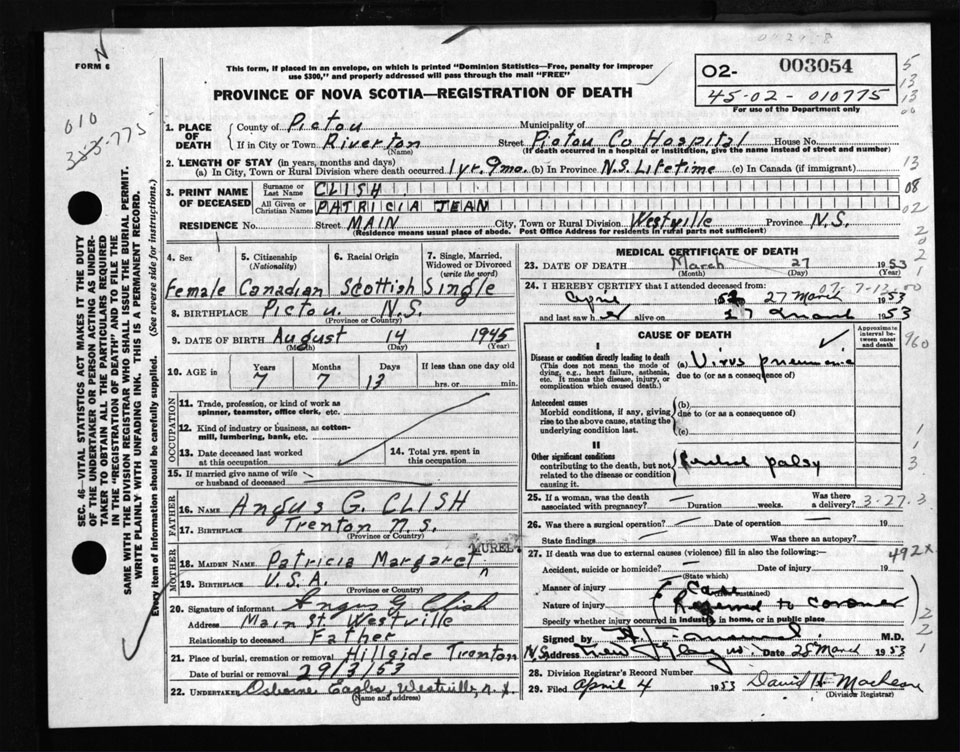 FORM 6
This form, if placed in an envelope, on which is printed "Dominion Statistics—Free, penalty for improper
use $300," and properly addressed will pass through the mail "FREE"
PROVINCE OF NOVA SCOTIA—REGISTRATION OF DEATH
02- 003054
45-02-010775
For use of the Department only
010
775
SEC. 46—VITAL STATISTICS ACT MAKES IT THE DUTY
OF THE UNDERTAKER OR PERSON ACTING AS UNDER-
TAKER TO OBTAIN ALL THE PARTICULARS REQUIRED
IN THE "REGISTRATION OF DEATH" AND TO FILE THE
SAME WITH THE DIVISION REGISTRAR WHO SHALL ISSUE THE BURIAL PERMIT.
WRITE PLAINLY WITH UNFADING INK. THIS IS A PERMANENT RECORD.
Every item of information should be carefully supplied. (See reverse side for instructions.)
1. PLACE OF DEATH County of Pictou Municipality of
If in City or Town Riverton Street Pictou Co Hospital House No.
(Name) (If death occurred in a hospital or institution, give the name instead of street and number)
2. LENGTH OF STAY (in years, months and days)
(a) In City, Town or Rural Division where death occurred 1yr. 9mo. (b) In Province N.S. Lifetime (c) In Canada (if immigrant)
3. PRINT NAME OF DECEASED Surname or Last Name CLISH
All Given or Christian Names PATRICIA JEAN
RESIDENCE No. Street MAIN City, Town or Rural Division Westville Province N.S.
(Residence means usual place of abode. Post Office Address for residents of rural parts not sufficient)
4. Sex 5. Citizenship (Nationality) 6. Racial Origin 7. Single, Married, Widowed or Divorced (write the word)
Female Canadian Scottish Single
8. BIRTHPLACE Pictou N.S.
(Province or Country)
9. DATE OF BIRTH August 14 1945
(Month) (Day) (Year)
10. AGE in Years Months Days If less than one day old
7 7 13 hrs. or min.
OCCUPATION
11. Trade, profession, or kind of work as
spinner, teamster, office clerk, etc.
12. Kind of industry or business, as cotton-
mill, lumbering, bank, etc.
13. Date deceased last worked at this occupation 14. Total yrs. spent in this occupation
15. If married give name of wife
or husband of deceased
FATHER
16. NAME Angus G. CLISH
17. BIRTHPLACE Trenton N.S.
(Province or Country)
MOTHER
18. MAIDEN NAME Patricia Margaret
19. BIRTHPLACE U.S.A.
(Province or Country)
20. Signature of informant Angus G Clish
Address Main St. Westville
Relationship to deceased Father
21. Place of burial, cremation or removal Hillside Trenton
Date of burial or removal 29/3/53
22. UNDERTAKER Osborne Eagles, Westville, N.S.
(Name and address)
MEDICAL CERTIFICATE OF DEATH
23. DATE OF DEATH March 27 1953
(Month) (Day)
24. I HEREBY CERTIFY that I attended deceased from:
April 1952 27 March 1953
and last saw her alive on 27 March 1953
CAUSE OF DEATH Approximate interval between onset and death
I
Disease or condition directly leading to death
(This does not mean the mode of
dying, e.g., heart failure, asthenia,
etc. It means the disease, injury, or
complication which caused death.)
(a) Virus pneumonia
due to (or as a consequence of)
Antecedent causes
Morbid conditions, if any, giving
rise to the above cause, stating the
underlying condition last.
(b)
due to (or as a consequence of)
(c)
II
Other significant conditions
contributing to the death, but not
related to the disease or condition
causing it.
palsy
25. If a woman, was the death
associated with pregnancy? Duration weeks. Was there a delivery?
3-27-3
26. Was there a surgical operation? Date of operation 19
State findings Was there an autopsy?
492x
27. If death was due to external causes (violence) fill in also the following:
Accident, suicide or homicide? Date of injury 19
(State which)
Manner of injury Case
Nature of injury Referred to coroner
Specify whether injury occurred in industry, in home, or in public place
Signed by M.D.
N.S. Address New Glasgow Date 28 March 1953
28. Division Registrar's Record Number
29. Filed April 4 1953 David H. MacLean
(Division Registrar)